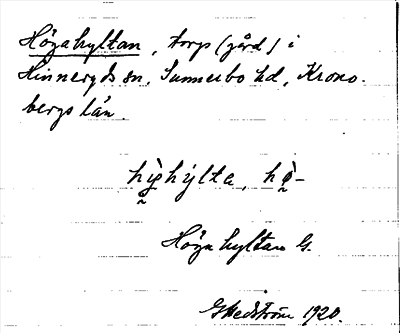 Högahyltan, torp (gård) i
Hinneryds sn, Sunnerbo hd, Krono-
bergs län.
hø̀ghýlta, hø̀-
Högahyltan G.
GHedström 1920.